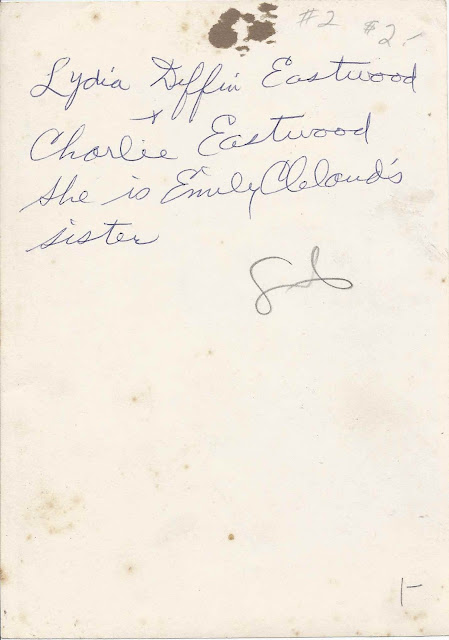 #2 $2.-
Lydia Diffin Eastwood
+
Charlie Eastwood
She is Emily Cleland's
sister
1-